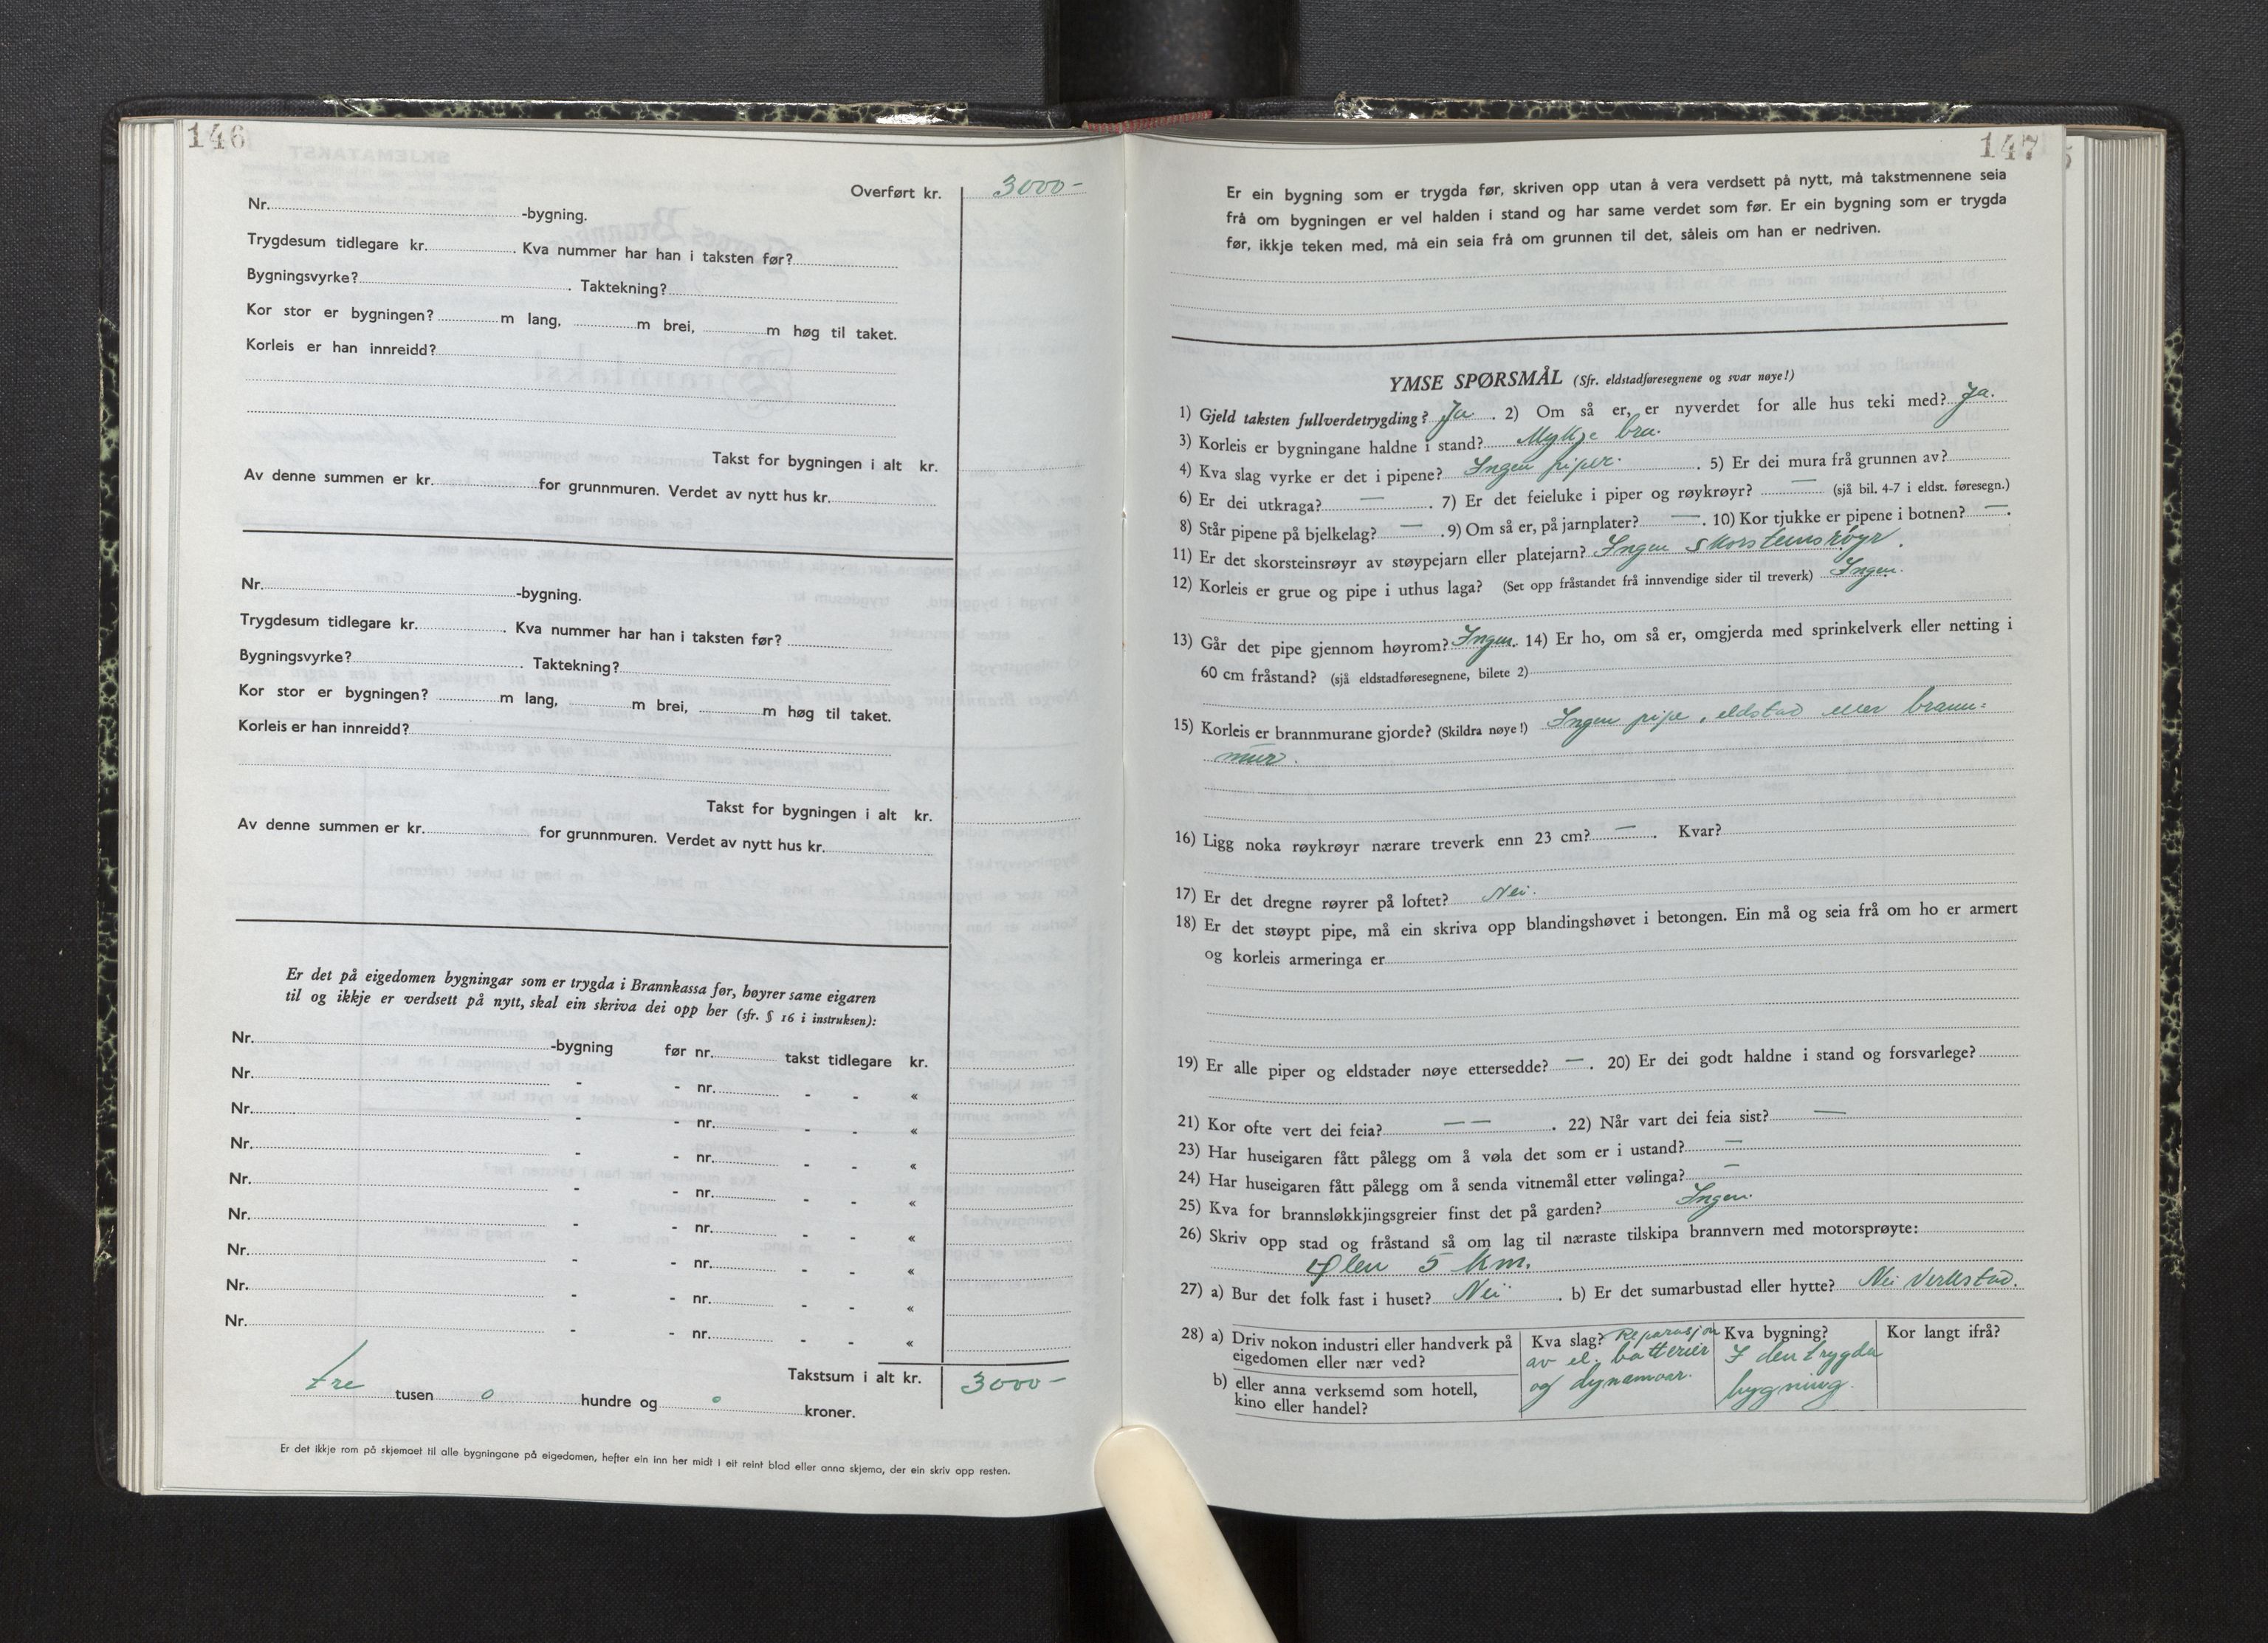 146
Overført kr. 3000-
Nr. -bygning.
Trygdesum tidlegare kr. . Kva nummer har han i taksten før?
Bygningsvyrke? . Taktekning?
Kor stor er bygningen? m lang, m brei, m høg til taket.
Korleis er han innreidd?
Takst for bygningen i alt kr.
Av denne summen er kr. for grunnmuren. Verdet av nytt hus kr.
Nr. -bygning.
Trygdesum tidlegare kr. . Kva nummer har han i taksten før?
Bygningsvyrke? . Taktekning?
Kor stor er bygningen? m lang, m brei, m høg til taket.
Korleis er han innreidd?
Takst for bygningen i alt kr.
Av denne summen er kr. for grunnmuren. Verdet av nytt hus kr.
Er det på eigedomen bygningar som er trygda i Brannkassa før, høyrer same eigaren
til og ikkje er verdsett på nytt, skal ein skriva dei opp her (sfr. § 16 i instruksen):
Nr. -bygning før nr. takst tidlegare kr.
Nr. - - nr. - - «
Nr. - - nr. - - «
Nr. - - nr. - - «
Nr. - - nr. - - «
Nr. - - nr. - - «
Nr. - - nr. - - «
Nr. - - nr. - - «
Nr. - - nr. - - «
Takstsum i alt kr. 3000-
tre tusen 0 hundre og 0 kroner.
Er det ikkje rom på skjemaet til alle bygningane på eigedomen, hefter ein inn her midt i eit reint blad eller anna skjema, der ein skriv opp resten.
147
Er ein bygning som er trygda før, skriven opp utan å vera verdsett på nytt, må takstmennene seia
frå om bygningen er vel halden i stand og har same verdet som før. Er ein bygning som er trygda
før, ikkje teken med, må ein seia frå om grunnen til det, såleis om han er nedriven.
YMSE SPØRSMÅL (Sfr. eldstadføresegnene og svar nøye!)
1) Gjeld taksten fullverdetrygding? Ja . 2) Om så er, er nyverdet for alle hus teki med? Ja.
3) Korleis er bygningane haldne i stand? Mykje bra.
4) Kva slag vyrke er det i pipene? Ingen piper. . 5) Er dei mura frå grunnen av?
6) Er dei utkraga? — . 7) Er det feieluke i piper og røykrøyr? — (sjå bil. 4-7 i eldst. føresegn.)
8) Står pipene på bjelkelag? — . 9) Om så er, på jarnplater? — . 10) Kor tjukke er pipene i botnen? — .
11) Er det skorsteinsrøyr av støypejarn eller platejarn? Ingen skorsteinsrøyr.
12) Korleis er grue og pipe i uthus laga? (Set opp fråstandet frå innvendige sider til treverk) Ingen.
13) Går det pipe gjennom høyrom? Ingen. 14) Er ho, om så er, omgjerda med sprinkelverk eller netting i
60 cm fråstand? (sjå eldstadføresegnene, bilete 2)
15) Korleis er brannmurane gjorde? (Skildra nøye!) Ingen pipe, eldstad eller brann=
mur.
16) Ligg noka røykrøyr nærare treverk enn 23 cm? — . Kvar?
17) Er det dregne røyrer på loftet? Nei.
18) Er det støypt pipe, må ein skriva opp blandingshøvet i betongen. Ein må og seia frå om ho er armert
og korleis armeringa er
19) Er alle piper og eldstader nøye ettersedde? — . 20) Er dei godt haldne i stand og forsvarlege?
21) Kor ofte vert dei feia? — — . 22) Når vart dei feia sist? —
23) Har huseigaren fått pålegg om å vøla det som er i ustand? —
24) Har huseigaren fått pålegg om å senda vitnemål etter vølinga? —
25) Kva for brannsløkkjingsgreier finst det på garden? Ingen.
26) Skriv opp stad og fråstand så om lag til næraste tilskipa brannvern med motorsprøyte:
Ølen 5 km.
27) a) Bur det folk fast i huset? Nei . b) Er det sumarbustad eller hytte? Nei Verkstad.
28) a) Driv nokon industri eller handverk på eigedomen eller nær ved?
b) eller anna verksemd som hotell, kino eller handel?
Kva slag? Reparasjon
av el. batterier
og dynamoar.
Kva bygning?
I den trygda
bygning.
Kor langt ifrå?